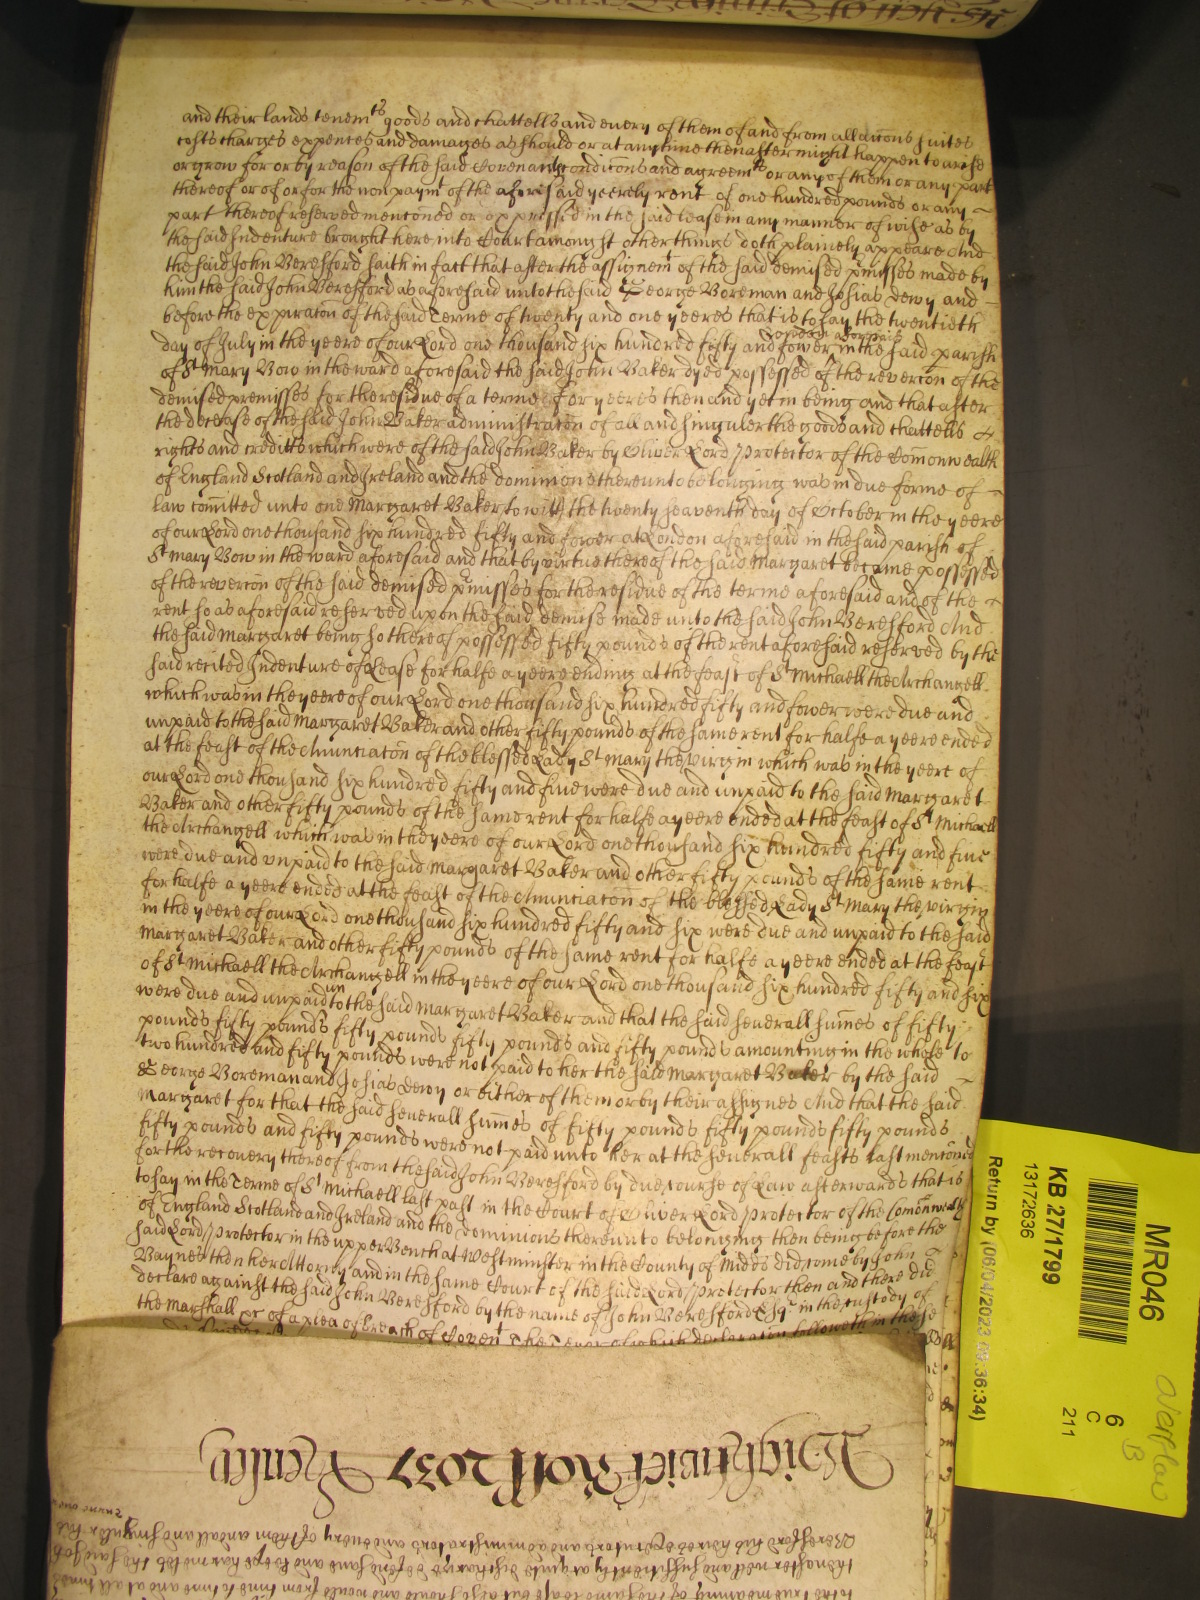 and their lands tenemts goods and chattells and euery of them of and from all accons suites
costs charges expences and damages as should or at any time thenafter might happen to arise
or grow for or by reason of the said Covenants condicons and agreemts or any of them or any part
thereof or of or for the non paymt of the aforesaid yeerely rent of one hundred pounds or any
part thereof reserved mentoned or expressed in the said lease in any manner of wise as by
the said Indenture brought here into Court amongst other things doth plainely appeare And
the said John Beresford saith in fact that after the assignemt of the said demised pmisses made by
him the said John Beresford as aforesaid unto the said George Boreman and Josias Dewy and
before the expiraton of the said Terme of twenty and one yeeres that is to say the twentieth
day of July in the yeere of our Lord one thousand six hundred fifty and fower in the said parish
of St Mary Bow in the ward aforesaid the said John Baker dyed possessed of the revercon of the
demised premisses for the residue of a terme for yeeres then and yet in being and that after
the decease of the said John Baker administraton of all and singuler the goods and chattells &
rights and credits which were of the said John Baker by Oliver Lord Protector of the Comonwealth
of England Scotland and Ireland and the dominions thereunto belonging was in due forme of
law comitted unto one Margaret Baker to witt the twenty seaventh day of October in the yeere
of our Lord one thousand six hundred fifty and fower at London aforesaid in the said parish of
St Mary Bow in the ward aforesaid and that by virtue thereof the said Margaret became possessed
of the revercon of the said demised pmisses for the residue of the terme aforesaid and of the
rent so as aforesaid reserved upon the said demise made unto the said John Beresford And
the said Margaret being so thereof possessed fifty pounds of the rent aforesaid reserved by the
said recited Indenture of Lease for halfe a yeere ending at the feast of St Michaell the Archangell
which was in the yeere of our Lord one thousand six hundred fifty and fower were due and
unpaid to the said Margaret Baker and other fifty pounds of the same rent for halfe a yeere ended
at the feast of the Anunciaton of the blessed Lady St Mary the virgin which was in the yeere of
our Lord one thousand six hundred fifty and fiue were due and unpaid to the said Margaret
Baker and other fifty pounds of the same rent for halfe a yeere ended at the feast of St Michaell
the Archangell which was in the yeere of our Lord one thousand six hundred fifty and fiue
were due and unpaid to the said Margaret Baker and other fifty pounds of the same rent
for halfe a yeere ended at the feast of the Anunciaton of the blessed Lady St Mary the virgin
in the yeere of our Lord one thousand six hundred fifty and six were due and unpaid to the said
Margaret Baker and other fifty pounds of the same rent for halfe a yeere ended at the feast
of St Michaell the Archangell in the yeere of our Lord one thousand six hundred fifty and six
were due and unpaid unto the said Margaret Baker and that the said seuerall sumes of fifty
pounds fifty pounds fifty pounds fifty pounds and fifty pounds amounting in the whole to
two hundred and fifty pounds were not paid to her the said Margaret Baker by the said
George Boreman and Josias Dewy or either of them or by their assignes And that the said
Margaret for that the said seuerall sumes of fifty pounds fifty pounds fifty pounds
fifty pounds and fifty pounds were not paid unto her at the seuerall feasts last mentoned
for the recovery thereof from the said John Beresford by due course of Law afterwards that is
to say in the Terme of St Michaell last past in the Court of Oliver Lord Protector of the Comonwealth
of England Scotland and Ireland and the Dominions thereunto belonging then being before the
said Lord Protector in the upper Bench at Westminster in the County of Midds did come by John
Baynes then her Attorny and in the same Court of the said Lord Protector then and there did
declare against the said John Beresford by the name of John Beresford Esqr in the custody of
the Marshall &c of a plea of breach of Covent The Tenor of which declaraton followeth in these
Wightwick Roll 2037 Henley
Beresford his heires Executors and administrators and euery of them and all and singuler his
MR046
KB 271/799
13172636
Return by (06/04/2023 09:36:34)
6
C
211
overflow
B